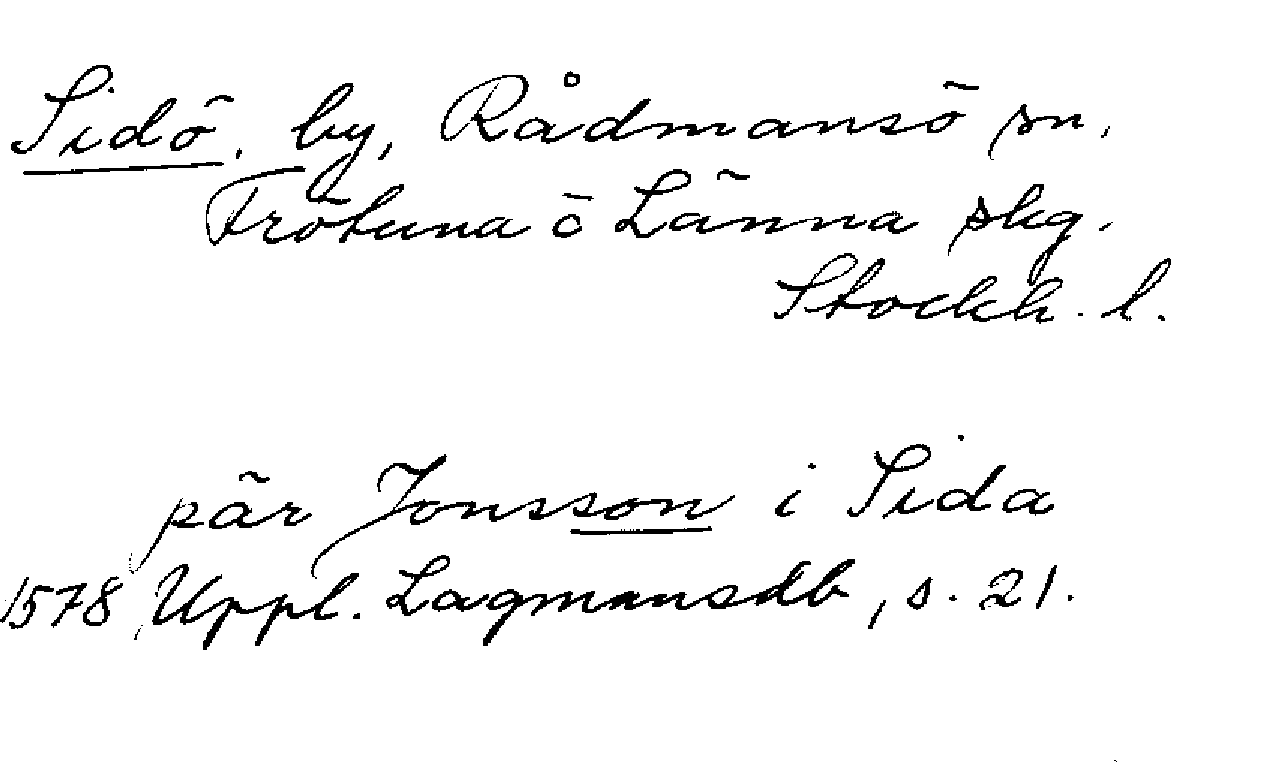 Sidö, by, Rådmansö sn,
Frötuna ö Länna skg.
Stockh. l.
pär Jonsson i Sida
1578, Uppl. Lagmansdb, s. 21.